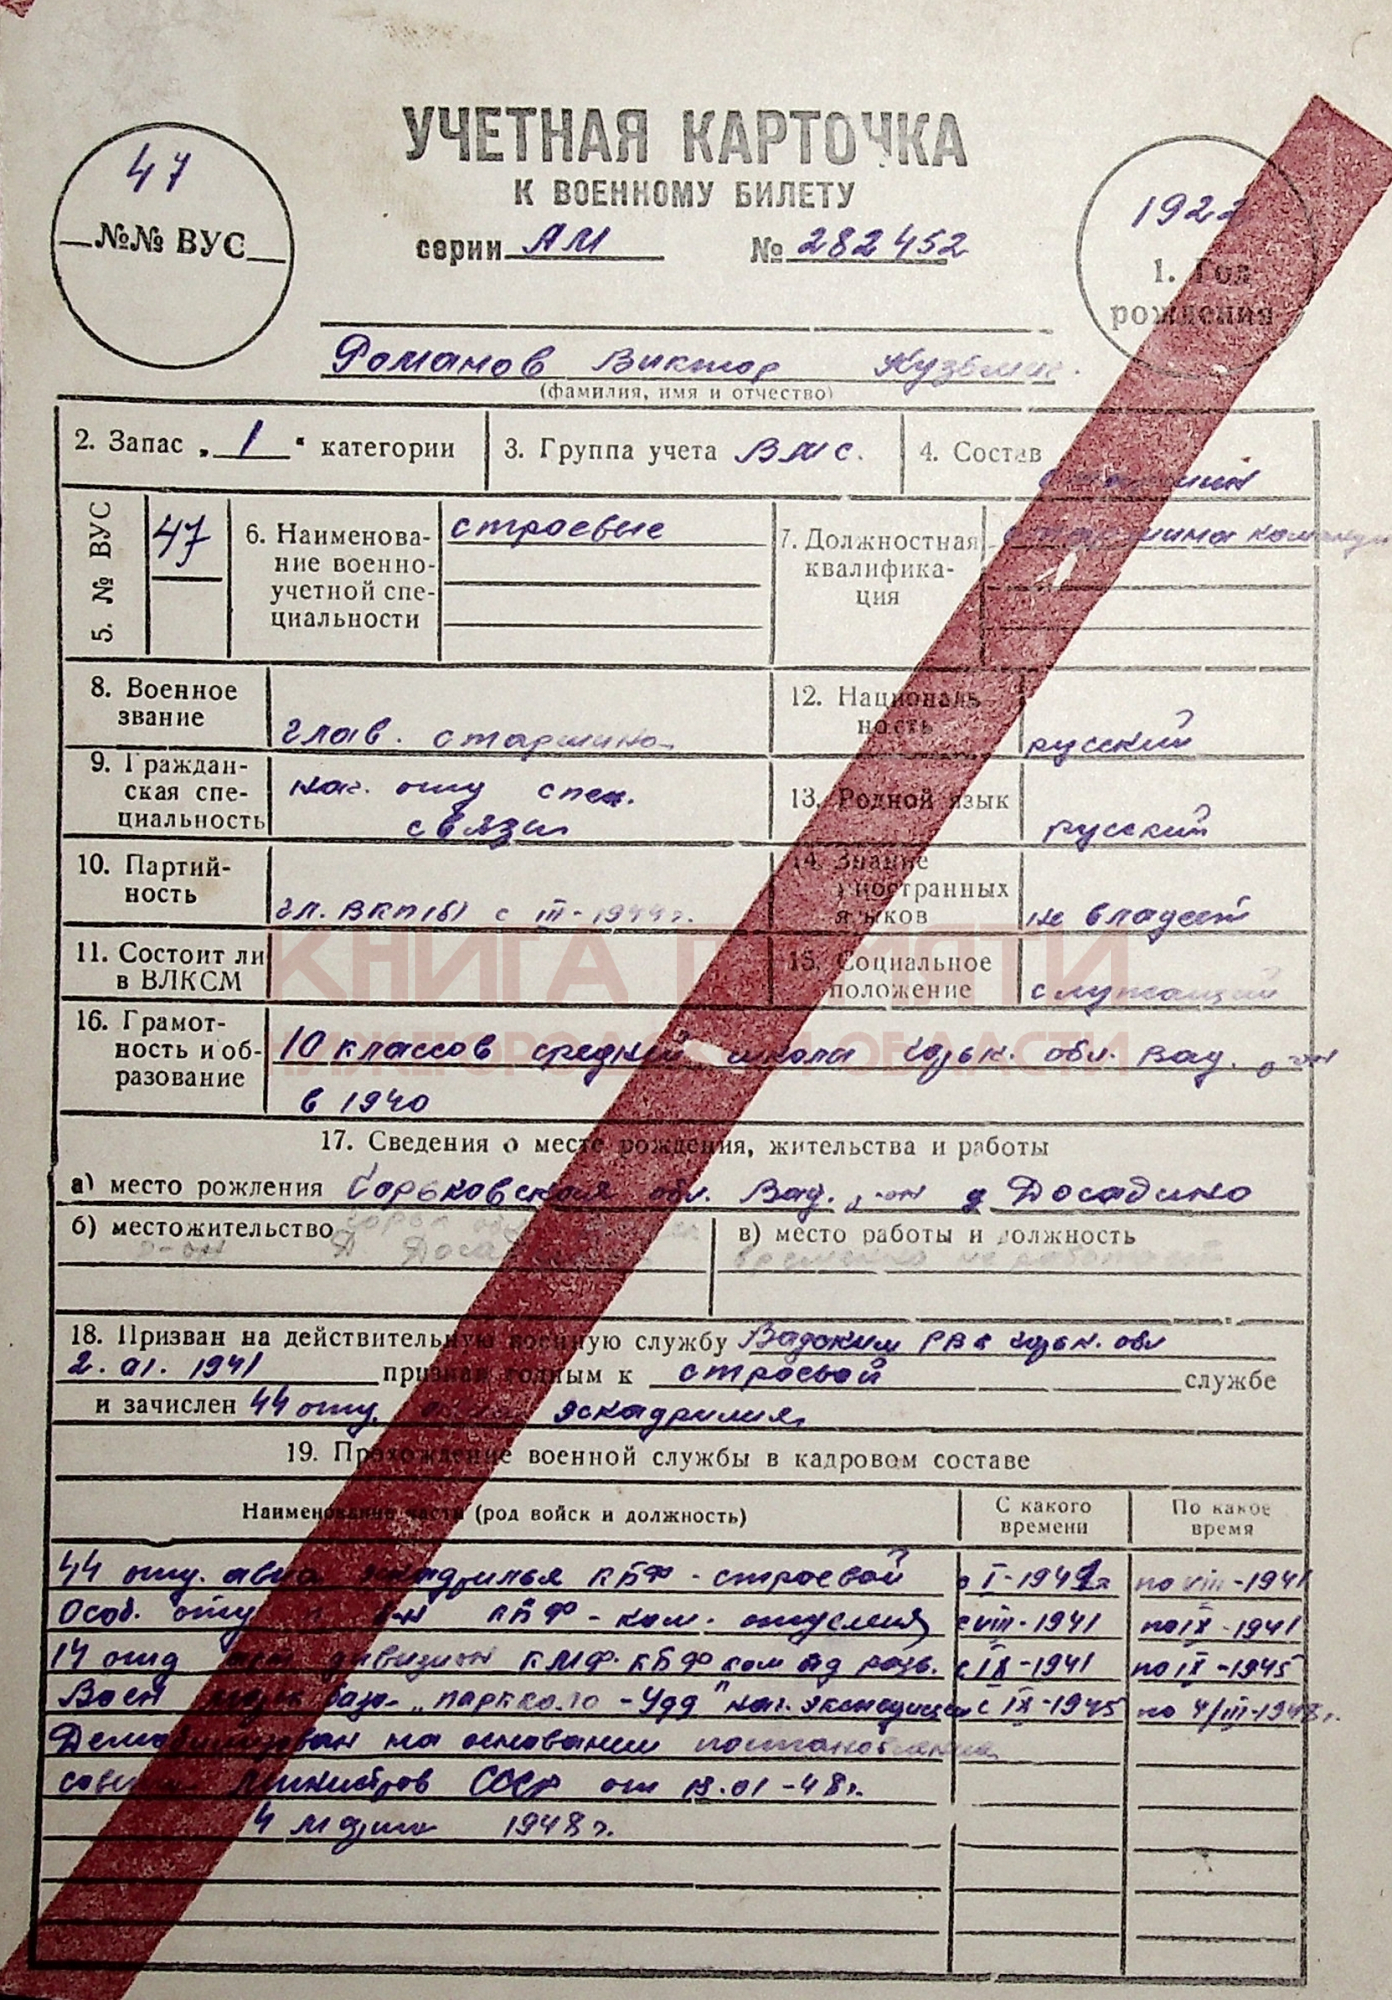 УЧЕТНАЯ КАРТОЧКА
К ВОЕННОМУ БИЛЕТУ
серии АМ № 282452
47
№№ ВУС
1922
1. Год
рождения
Романов Виктор Кузьмич
(фамилия, имя и отчество)
2. Запас „1“ категории
3. Группа учета ВМС.
4. Состав
старшин
5. № ВУС
47
6. Наименова-
ние военно-
учетной спе-
циальности
строевые
7. Должностная
квалифика-
ция
старшина команды
8. Военное
звание
глав. старшина
9. Граждан-
ская спе-
циальность
нач. отд спец.
связи
10. Партий-
ность
чл. ВКП(б) с III-1944г.
11. Состоит ли
в ВЛКСМ
12. Националь
ность
русский
13. Родной язык
русский
14. Знание
иностранных
языков
не владеет
15. Социальное
положение
служащий
КНИГА ПАМЯТИ
НИЖЕГОРОДСКОЙ ОБЛАСТИ
16. Грамот-
ность и об-
разование
10 классов средней школы Горьк. обл. Вад. р-он
в 1940
17. Сведения о месте рождения, жительства и работы
а) место рождения Горьковская обл. Вад. р-он д Досадино
б) местожительство
р-он д Досадино
в) место работы и должность
временно не работает
18. Призван на действительную военную службу Вадским РВК Горьк. обл
2. 01. 1941 признан годным к строевой службе
и зачислен 44 отд. авиа эскадрилия
19. Прохождение военной службы в кадровом составе
Наименование части (род войск и должность)
С какого
времени
По какое
время
44 отд. авиа эскадрилья КБФ - строевой с I-1941 по VIII-1941
Особ. отд б-н КБФ - ком. отделения с VIII-1941 по IX-1941
14 отд дивизион КМФ. КБФ ком отд разв. с IX-1941 по IX-1945
Воен база „Порккала-Удд“ нач. экспедиции с IX-1945 по 4/III-1948г.
Демобилизован на основании постановления
совета министров СССР от 13.01-48г.
4 марта 1948г.